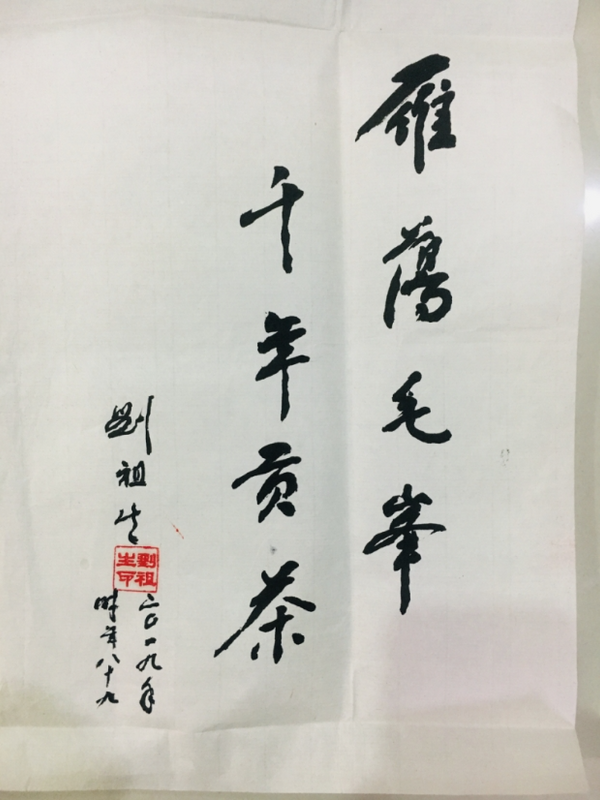 雁蕩毛峯
千年贡茶
劉祖生
劉祖生印
二〇一九年
時年八十九